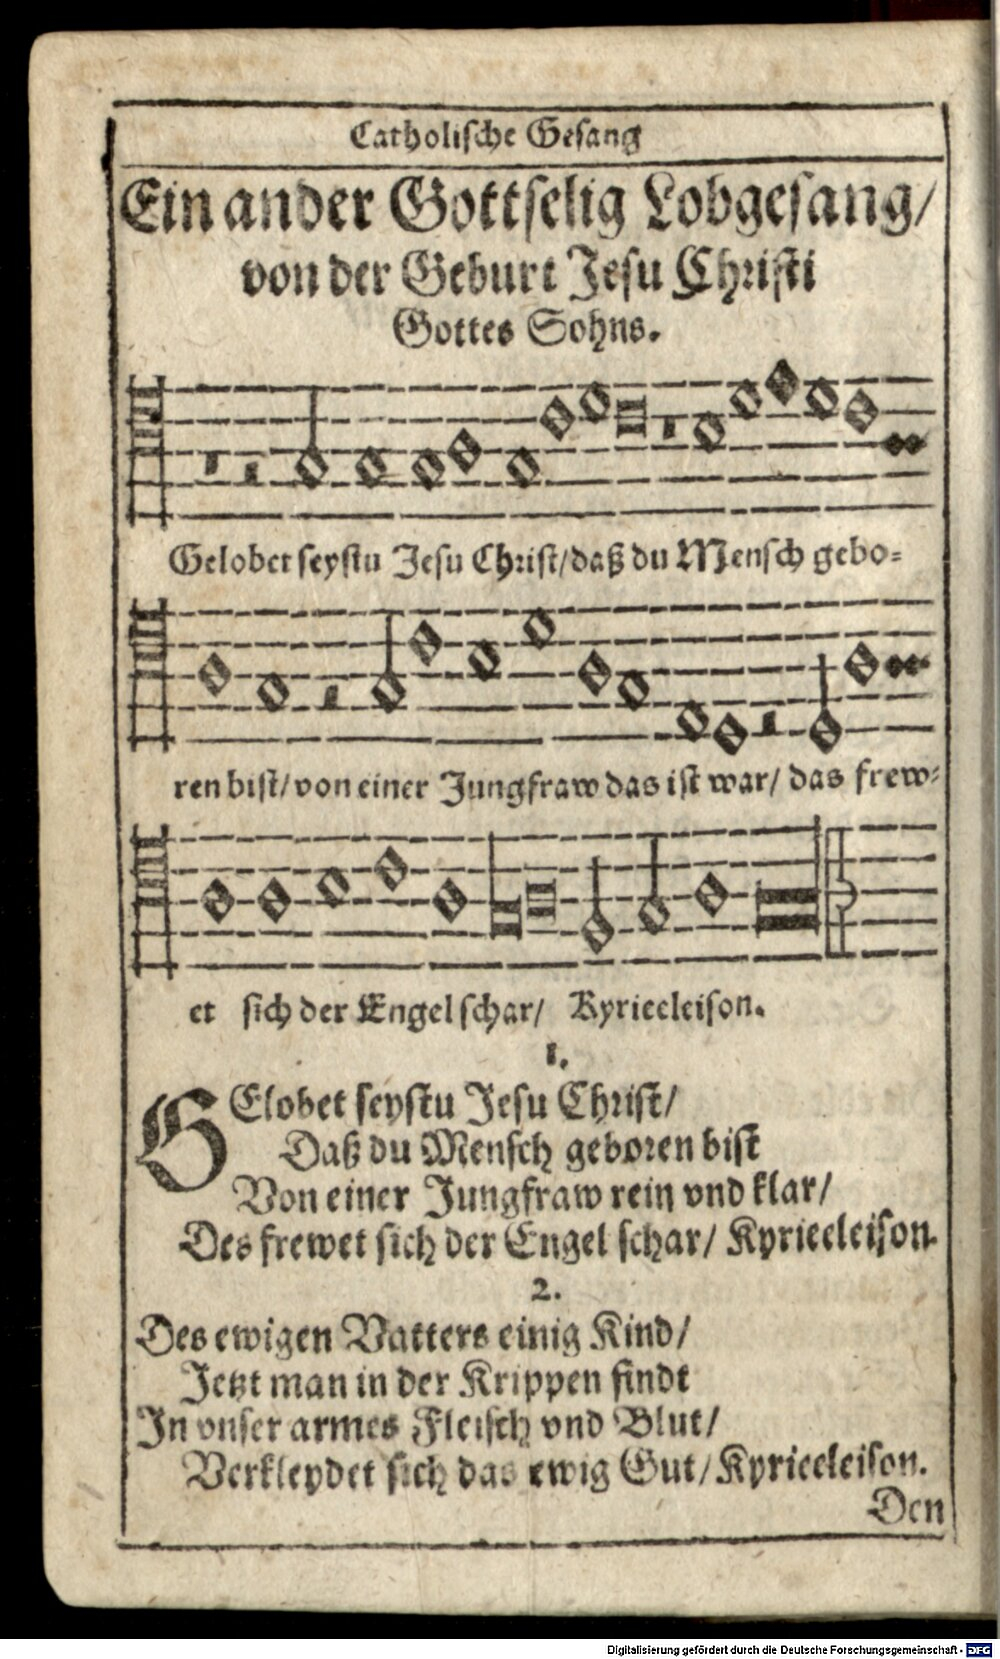 Catholische Gesang
Ein ander Gottselig Lobgesang/
von der Geburt Jesu Christi
Gottes Sohns.
Gelobet seystu Jesu Christ/ daß du Mensch gebo-
ren bist/ von einer Jungfraw das ist war/ das frew-
et sich der Engel schar/ Kyrieeleison.
1.
GElobet seystu Jesu Christ/
Daß du Mensch geboren bist
Von einer Jungfraw rein vnd klar/
Des frewet sich der Engel schar/ Kyrieeleison.
2.
Des ewigen Vatters einig Kind/
Jetzt man in der Krippen findt
In vnser armes Fleisch vnd Blut/
Verkleydet sich das ewig Gut/ Kyrieeleison.
Den
Digitalisierung gefördert durch die Deutsche Forschungsgemeinschaft - DFG